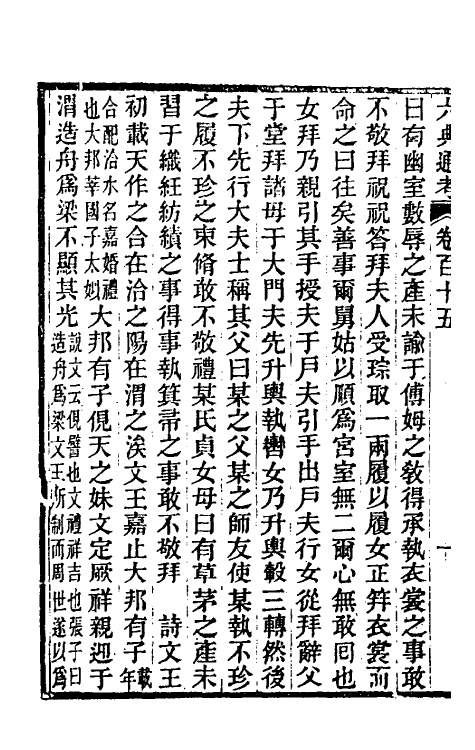 六典通考 卷百十五 一
曰有幽室數辱之產未諭于傅姆之敎得承執衣裳之事敢
不敬拜祝祝答拜夫人受琮取一兩履以履女正笄衣裳而
命之曰往矣善事爾舅姑以順爲宮室無二爾心無敢囘也
女拜乃親引其手授夫于戶夫引手出戶夫行女從拜辭父
于堂拜諸母于大門夫先升輿執轡女乃升輿轂三轉然後
夫下先行大夫士稱其父曰某之父某之師友使某執不珍
之履不珍之束脩敢不敬禮某氏貞女母曰有草茅之產未
習于織紝紡績之事得事執箕帚之事敢不敬拜 詩文王
初載天作之合在洽之陽在渭之涘文王嘉止大邦有子載年
合配洽水名嘉婚禮也大邦莘國子太姒大邦有子俔天之妹文定厥祥親迎于
渭造舟爲梁不顯其光說文云俔譬也文禮祥吉也張子曰造舟爲梁文王所制而周世遂以爲